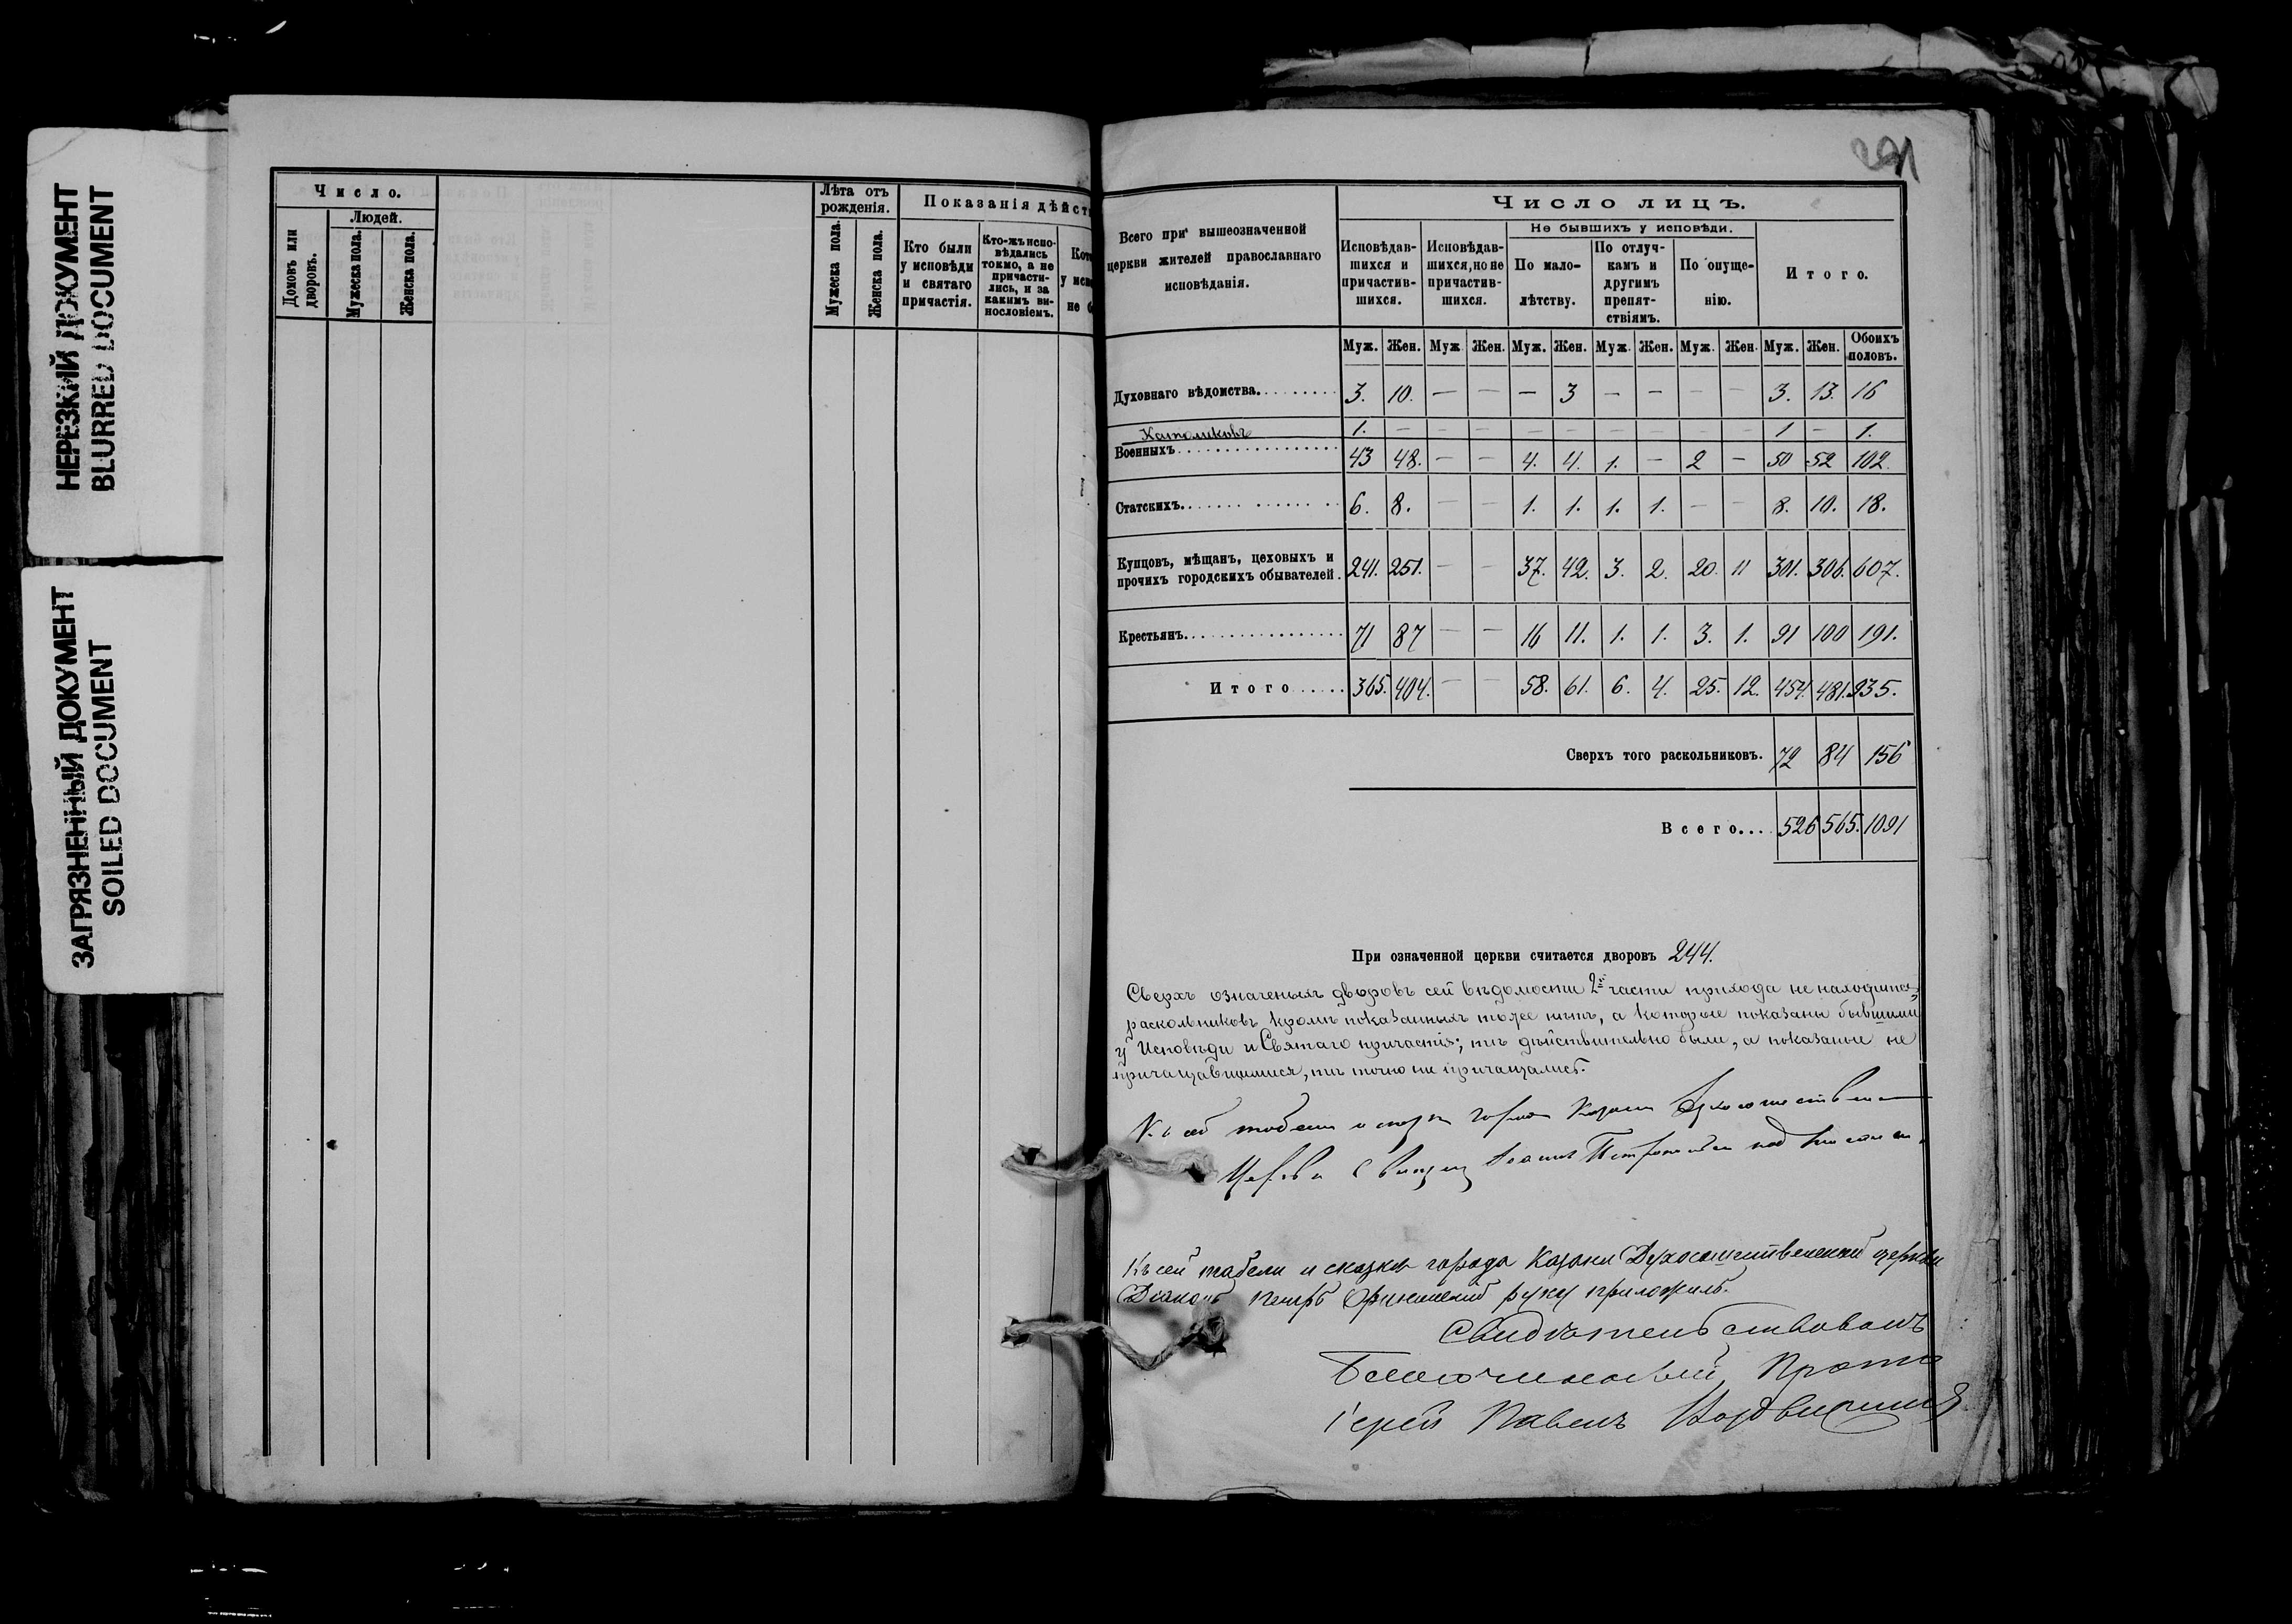 НЕРЕЗКИЙ ДОКУМЕНТ
BLURRED DOCUMENT
ЗАГРЯЗНЕННЫЙ ДОКУМЕНТ
SOILED DOCUMENT
Число.
Людей.
Домовъ или дворовъ.
Мужеска пола.
Женска пола.
Лѣта отъ рожденія.
Мужеска пола.
Женска пола.
Показанія дѣйст
Кто были у исповѣди и святаго причастія.
Кто-жъ испо-вѣдались токмо, а не причасти-лись, и за какимъ ви-нословіемъ.
291
Всего при вышеозначенной
церкви жителей православнаго
исповѣданія.
Число лицъ.
Исповѣдав-шихся и причастив-шихся.
Исповѣдав-шихся, но не причастив-шихся.
Не бывшихъ у исповѣди.
По мало-лѣтству.
По отлуч-камъ и другимъ препят-ствіямъ.
По опуще-нію.
Итого.
Муж. Жен. Муж. Жен. Муж. Жен. Муж. Жен. Муж. Жен. Муж. Жен. Обоихъ половъ.
Духовнаго вѣдомства. 3. 10. — — — 3 — — — — 3. 13. 16
Католиковъ 1. — — — — — — — — — 1 — 1.
Военныхъ 43 48. — — 4. 4. 1. — 2 — 50 52 102.
Статскихъ. 6. 8. — — 1. 1. 1. 1. — — 8. 10. 18.
Купцовъ, мѣщанъ, цеховыхъ и
прочихъ городскихъ обывателей. 241. 251. — — 37. 42. 3. 2. 20. 11 301. 306. 607.
Крестьянъ. 71 87 — — 16 11. 1. 1. 3. 1. 91 100 191.
Итого 365. 404. — — 58. 61. 6. 4. 25. 12. 454. 481. 935.
Сверхъ того раскольниковъ. 72 84 156
Всего.... 526 565. 1091
При означенной церкви считается дворовъ 244.
Сверхъ означеныхъ дворовъ сей вѣдомости 2й части прихода не находится,
раскольниковъ кромѣ показанныхъ тоже нѣтъ, а которые показаны бывшими
у Исповѣди и Святаго причастія; тѣ дѣйствительно были, а показаные не
причащавшимися, тѣ точно не причащались.
Къ сей табели и сказкѣ города Казани Духосошественской
Церкви Священ Іоаннъ подписался.
Къ сей табели и сказкѣ города Казани Духосошественской церкви
Діаконъ Петръ руку приложилъ.
Свидѣтельствовалъ
Благочинный Прото
іерей Павелъ